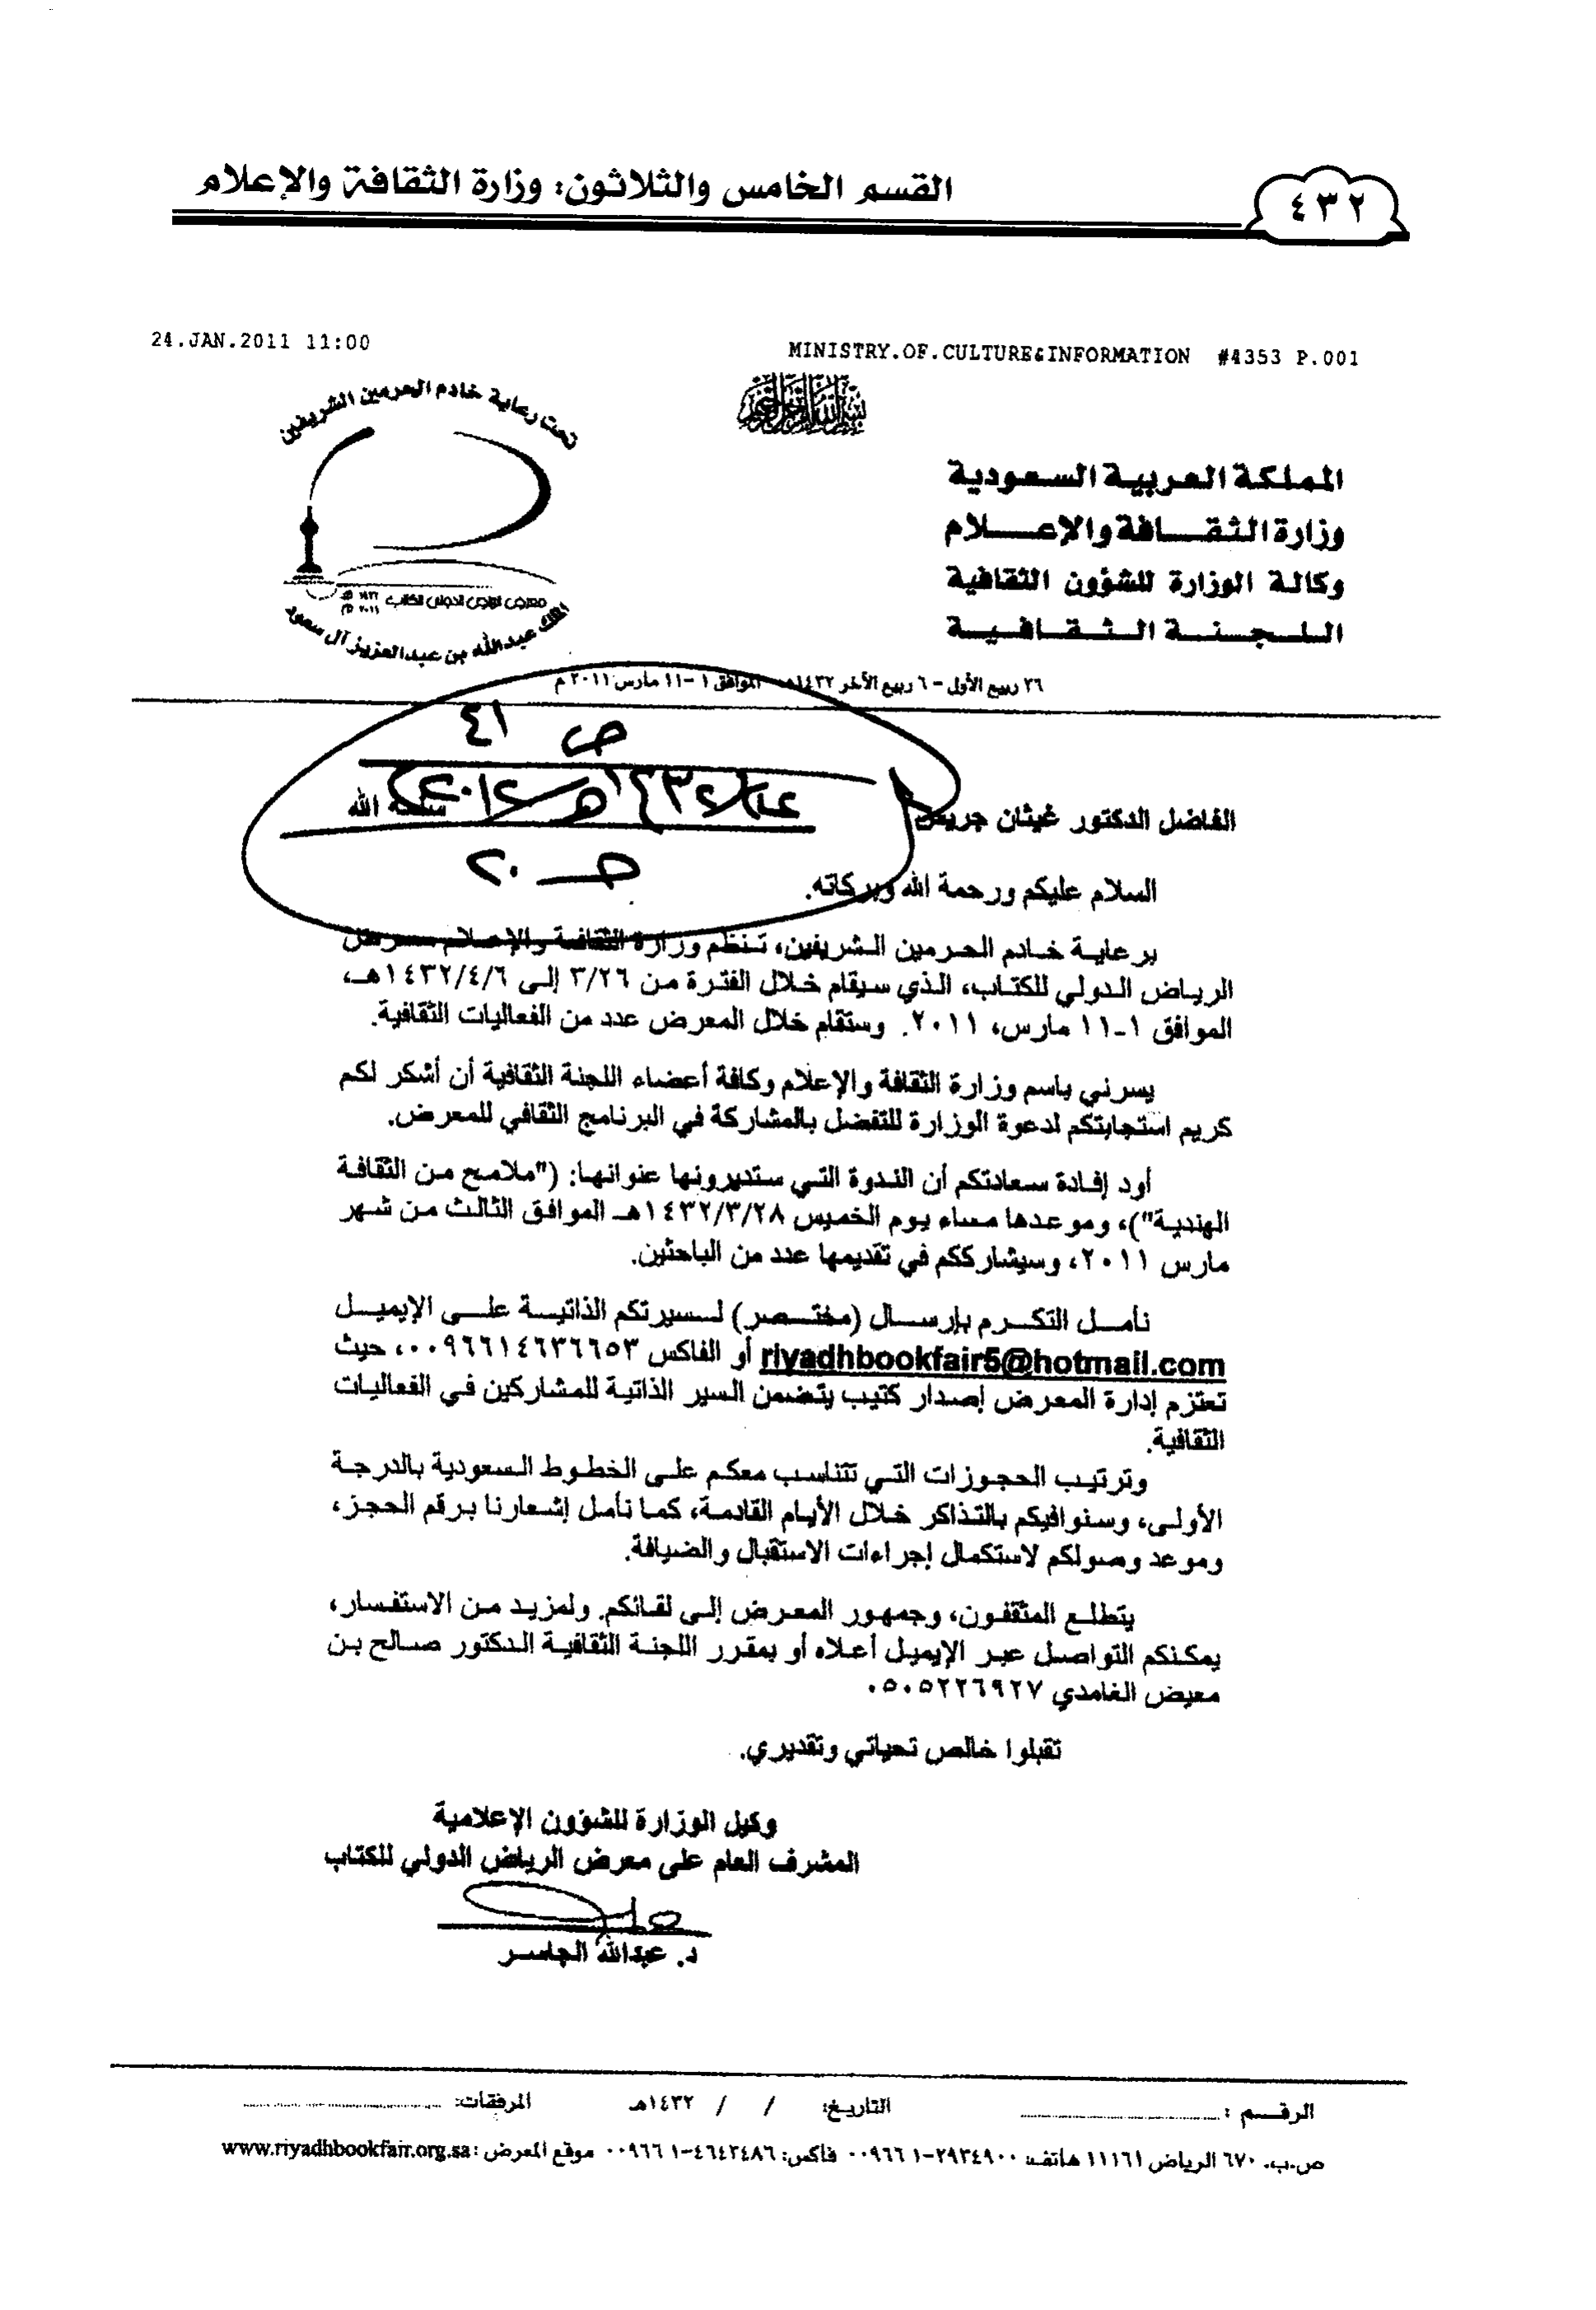 القسم الخامس والثلاثون: وزارة الثقافة والإعلام
٤٣٢
24.JAN.2011 11:00
MINISTRY.OF.CULTURE&INFORMATION #4353 P.001
بسم الله الرحمن الرحيم
تحت رعاية خادم الحرمين الشريفين
معرض الرياض الدولي للكتاب
الملك عبدالله بن عبدالعزيز آل سعود
المملكة العربية السعودية
وزارة الثقافة والإعلام
وكالة الوزارة للشؤون الثقافية
اللجنة الثقافية
٢٦ ربيع الأول - ٦ ربيع الآخر ١٤٣٢هـ الموافق ١-١١ مارس ٢٠١١م
ص ٤١
ص ٢٠
الفاضل الدكتور غيثان جريس سلمه الله
السلام عليكم ورحمة الله وبركاته.
برعاية خادم الحرمين الشريفين، تنظم وزارة الثقافة والإعلام معرض
الرياض الدولي للكتاب، الذي سيقام خلال الفترة من ٣/٢٦ إلى ١٤٣٢/٤/٦هـ،
الموافق ١-١١ مارس، ٢٠١١. وستقام خلال المعرض عدد من الفعاليات الثقافية.
يسرني باسم وزارة الثقافة والإعلام وكافة أعضاء اللجنة الثقافية أن أشكر لكم
كريم استجابتكم لدعوة الوزارة للتفضل بالمشاركة في البرنامج الثقافي للمعرض.
أود إفادة سعادتكم أن الندوة التي ستديرونها عنوانها: ("ملامح من الثقافة
الهندية")، وموعدها مساء يوم الخميس ١٤٣٢/٣/٢٨هـ الموافق الثالث من شهر
مارس ٢٠١١، وسيشارككم في تقديمها عدد من الباحثين.
نأمل التكرم بإرسال (مختصر) لسيرتكم الذاتية على الإيميل
riyadhbookfair5@hotmail.com أو الفاكس ٠٠٩٦٦١٤٦٣٦٦٥٣، حيث
تعتزم إدارة المعرض إصدار كتيب يتضمن السير الذاتية للمشاركين في الفعاليات
الثقافية.
وترتيب الحجوزات التي تتناسب معكم على الخطوط السعودية بالدرجة
الأولى، وسنوافيكم بالتذاكر خلال الأيام القادمة، كما نأمل إشعارنا برقم الحجز،
وموعد وصولكم لاستكمال إجراءات الاستقبال والضيافة.
يتطلع المثقفون، وجمهور المعرض إلى لقائكم. ولمزيد من الاستفسار،
يمكنكم التواصل عبر الإيميل أعلاه أو بمقرر اللجنة الثقافية الدكتور صالح بن
معيض الغامدي ٠٥٠٥٢٢٦٩٢٧
تقبلوا خالص تحياتي وتقديري.
وكيل الوزارة للشؤون الإعلامية
المشرف العام على معرض الرياض الدولي للكتاب
د. عبدالله الجاسر
الرقم : التاريخ: / / ١٤٣٢هـ المرفقات:
ص.ب. ٦٧٠ الرياض ١١١٦١ هاتف: ٢٩٣٤٩٠٠-١ ٠٠٩٦٦ فاكس: ٤٦٤٢٤٨٦-١ ٠٠٩٦٦ موقع المعرض: www.riyadhbookfair.org.sa